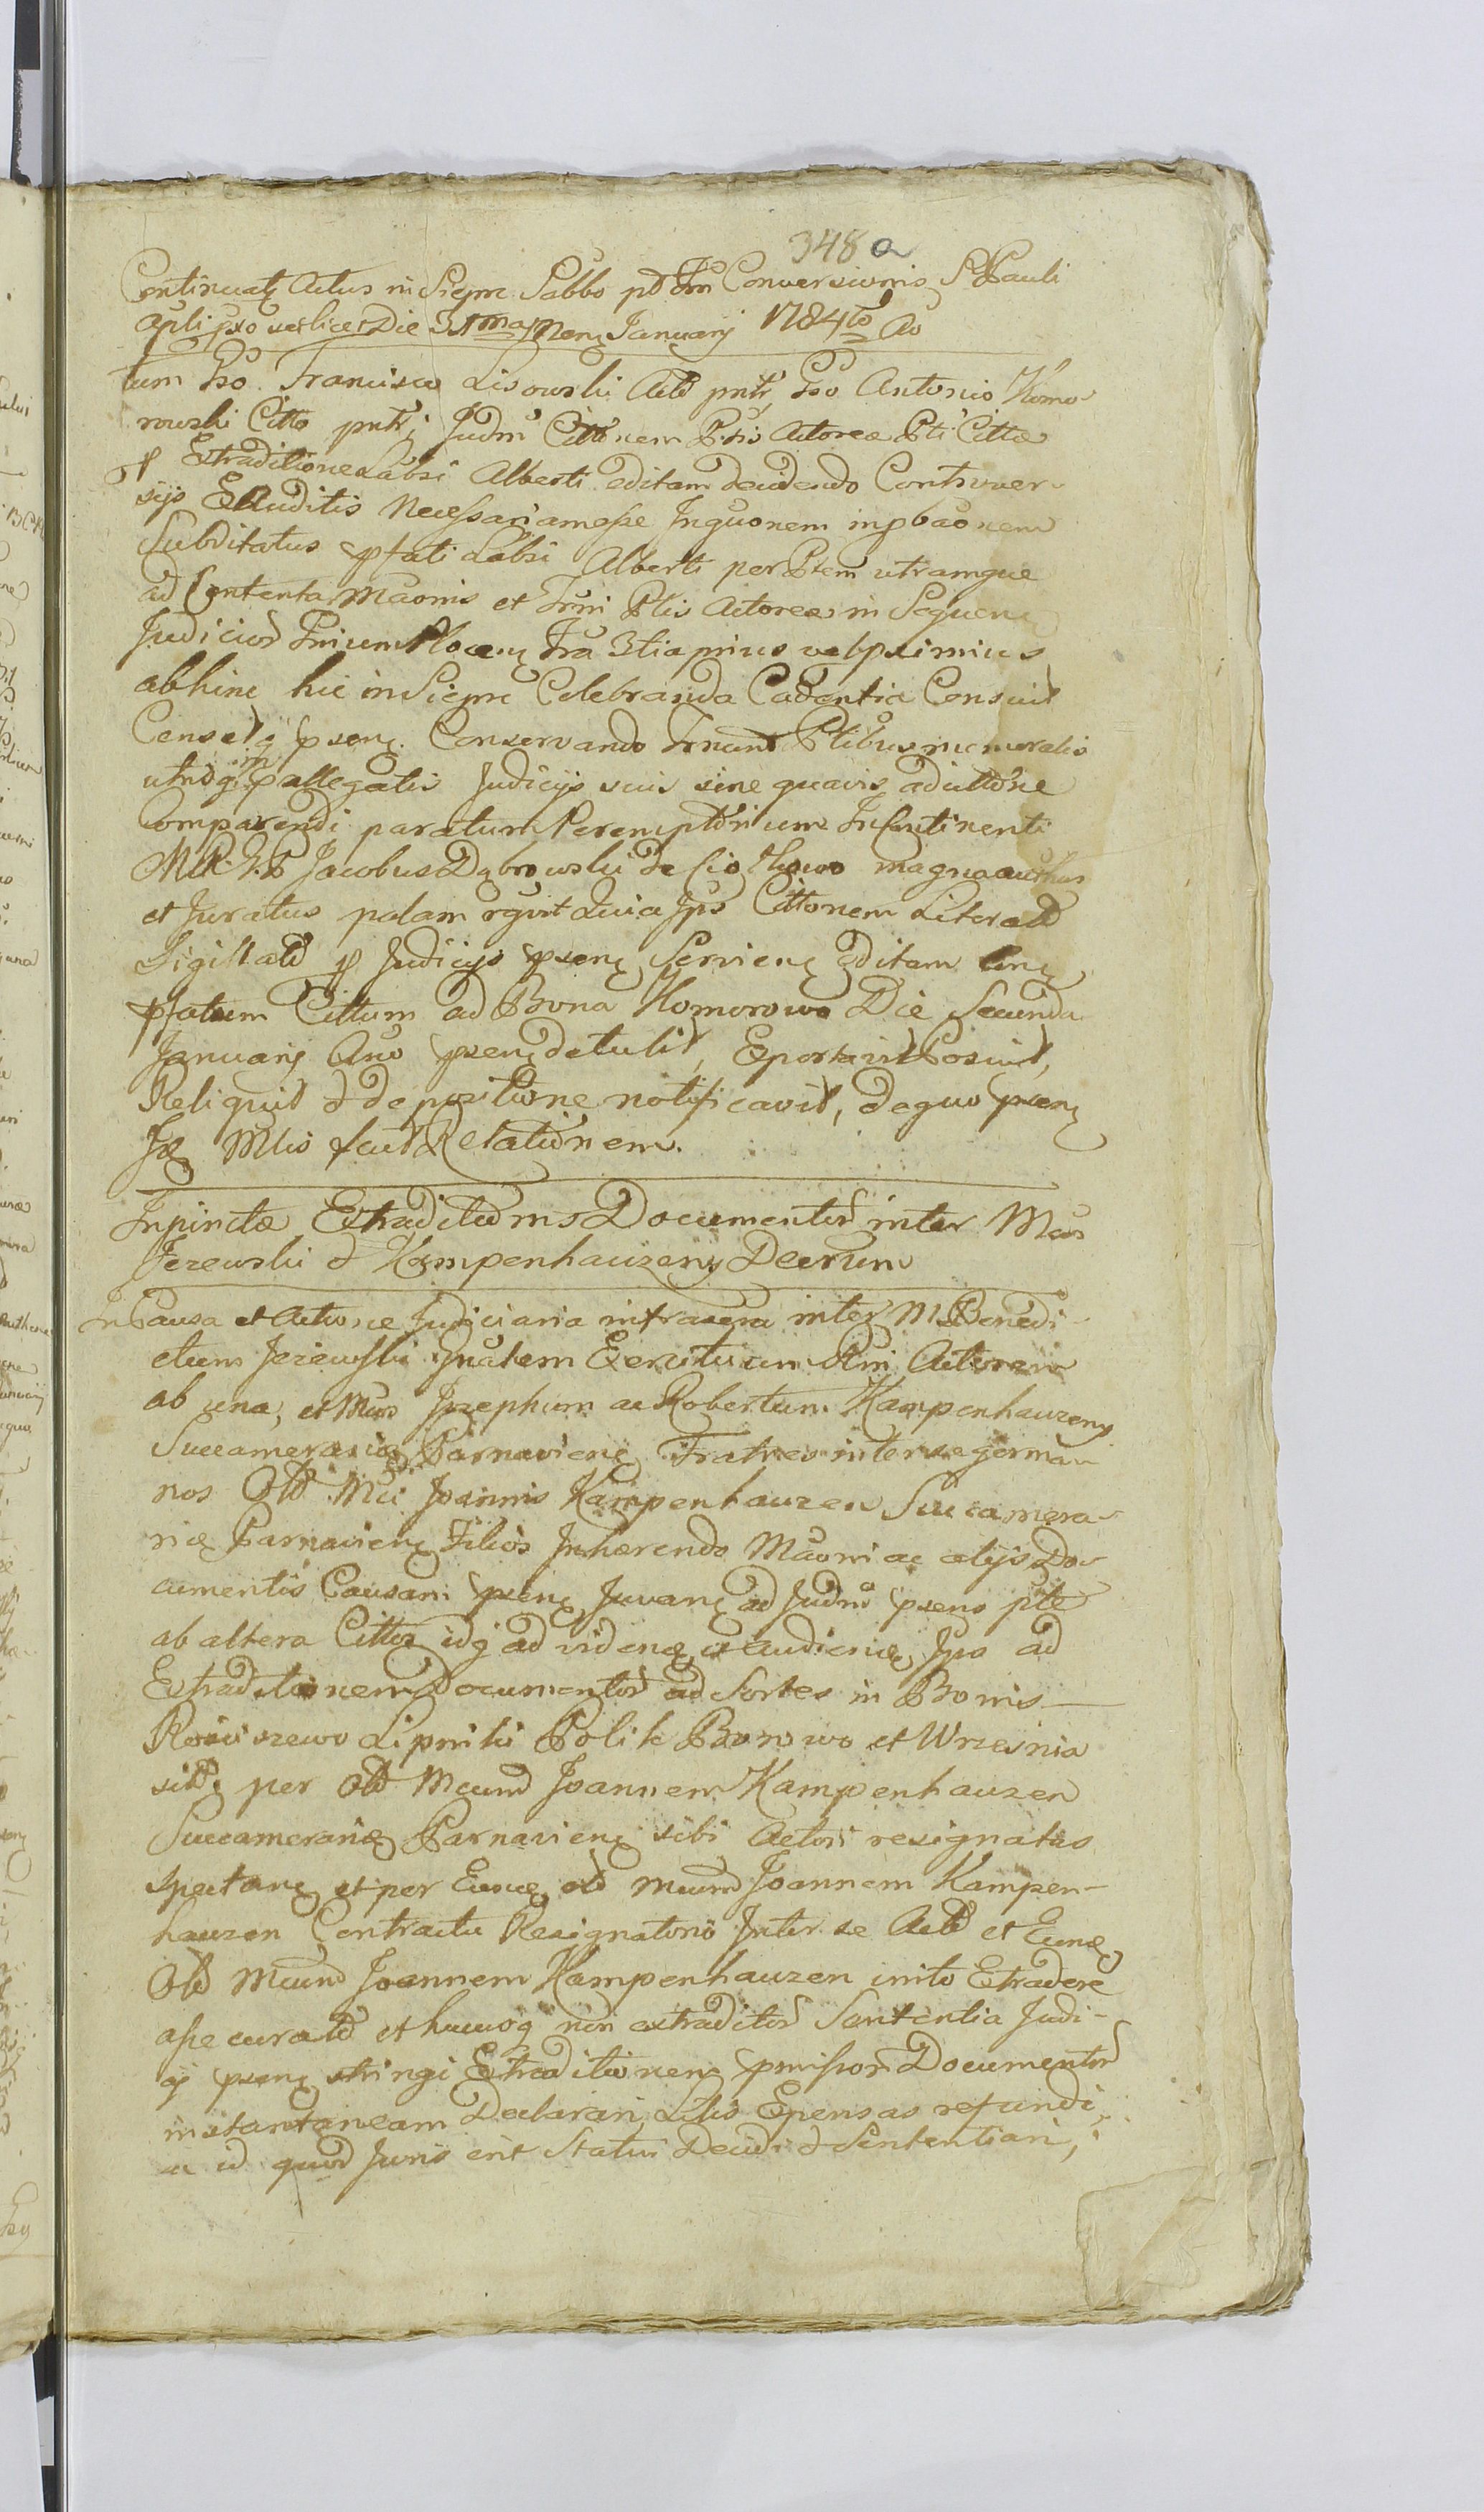 348 a
Continuatę Actus in Siepre Sabbo pō Fm Conversionis S Pauli
Apli pxo scilicet Die 31ma Mensę Januarij 1784to Ao
tum Gso. Francisco Lisowski Actō pntr, Gso Antonio Komo-
rowski Citto pntr, Judm Cittōnem Ptis Actoreæ Pti Cittæ
p Extraditione Labsi Alberti editam decidendo Controver-
sijs Exauditis Necessariam esse Inquonem inpbaonem
Subditatus pfati Labsi Alberti per Ptem utramque
ad Contenta Mãonis et Trmi Ptis Actoreæ in Sequenę
Judicior Trium Plocenę Fra 3tia prius vel proximius
abhinc hic in Siepre Celebranda Cadentia Consuit
Censetq psenę. Conservando Trnum Ptibus memoratis
utrisq in pallegatis Judicijs suis sine quavis adcittōne
Comparendi paratum Peremptōrium Incontinenti
MR. G. P Jacobus Dąbrowski de Ciołkowo magna authus
et Juratus palam rgvit Quia Ips Cittōnem Literatō
Sigillatō p Judicijs psenę Servienę editam
pfatum Cittum ad Bona Komorowo Die Secunda
Januarij Ano psenę detulit, Exportavit Posuit,
Reliquit & depositione notificavit, de quo psenę
Ję Mlis fecit Relationem.
In pincta Extraditionis Documentor inter Mcos
Jezewski & Kampenhauzeny Decrum
In Causa et Actione Judiciaria infrascra inter M. Benedi-
ctum Jezewski Gnalem Exercituum Actorem
ab una, et Mcos Josephum ac Robertum Kampenhauzeny
Succamerarios Parnavienę Fratres inter se germa-
nos Olō Mci Joannis Kampenhauzen Succamera-
rij Parnavienę Filios Inhærendo Mãoni ac alijs Do-
cumentis Causam psenę Juvanę ad Judm psens pte
ab altera Cittos idq ad videnę et audienę Ips ad
Extraditionem Documentor ad Sortes in Bonis
Rosciszewo Lipniki Polik Borowo et Wrzesnia
sitę per Olō Mcum Joannem Kampenhauzen
Succamerariū Parnavienę sibi Actori resignatas
spectanę et per Eunę olō Mcum Joannem Kampen-
hauzen Contractu Resignatorio Inter se Actō et Eunę
Olō Mcum Joannem Kampenhauzen inito Extradere
assecuratō et hucusq non extraditor Sententia Judi-
cij psenę stringi Extraditionem pmissor Documentor
instantaneam Declarari, Litis Expensas refundi
ac id quod Juris erit Statui Decidi & Sententiari,